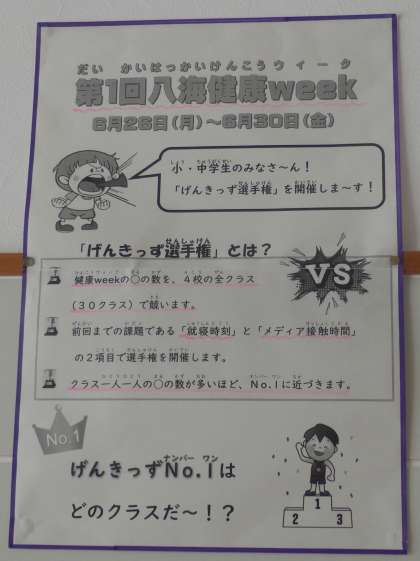 第1回八海健康week
6月26日(月)~6月30日(金)
小・中学生のみなさ~ん!
「げんきっず選手権」を開催しま~す!
「げんきっず選手権」とは?
VS
健康weekの○の数を、4校の全クラス
(30クラス)で競います。
前回までの課題である「就寝時刻」と「メディア接触時間」
の2項目で選手権を開催します。
クラス一人一人の○の数が多いほど、No.1に近づきます。
No.1
げんきっずNo.1は
どのクラスだ~!?
1
2 3